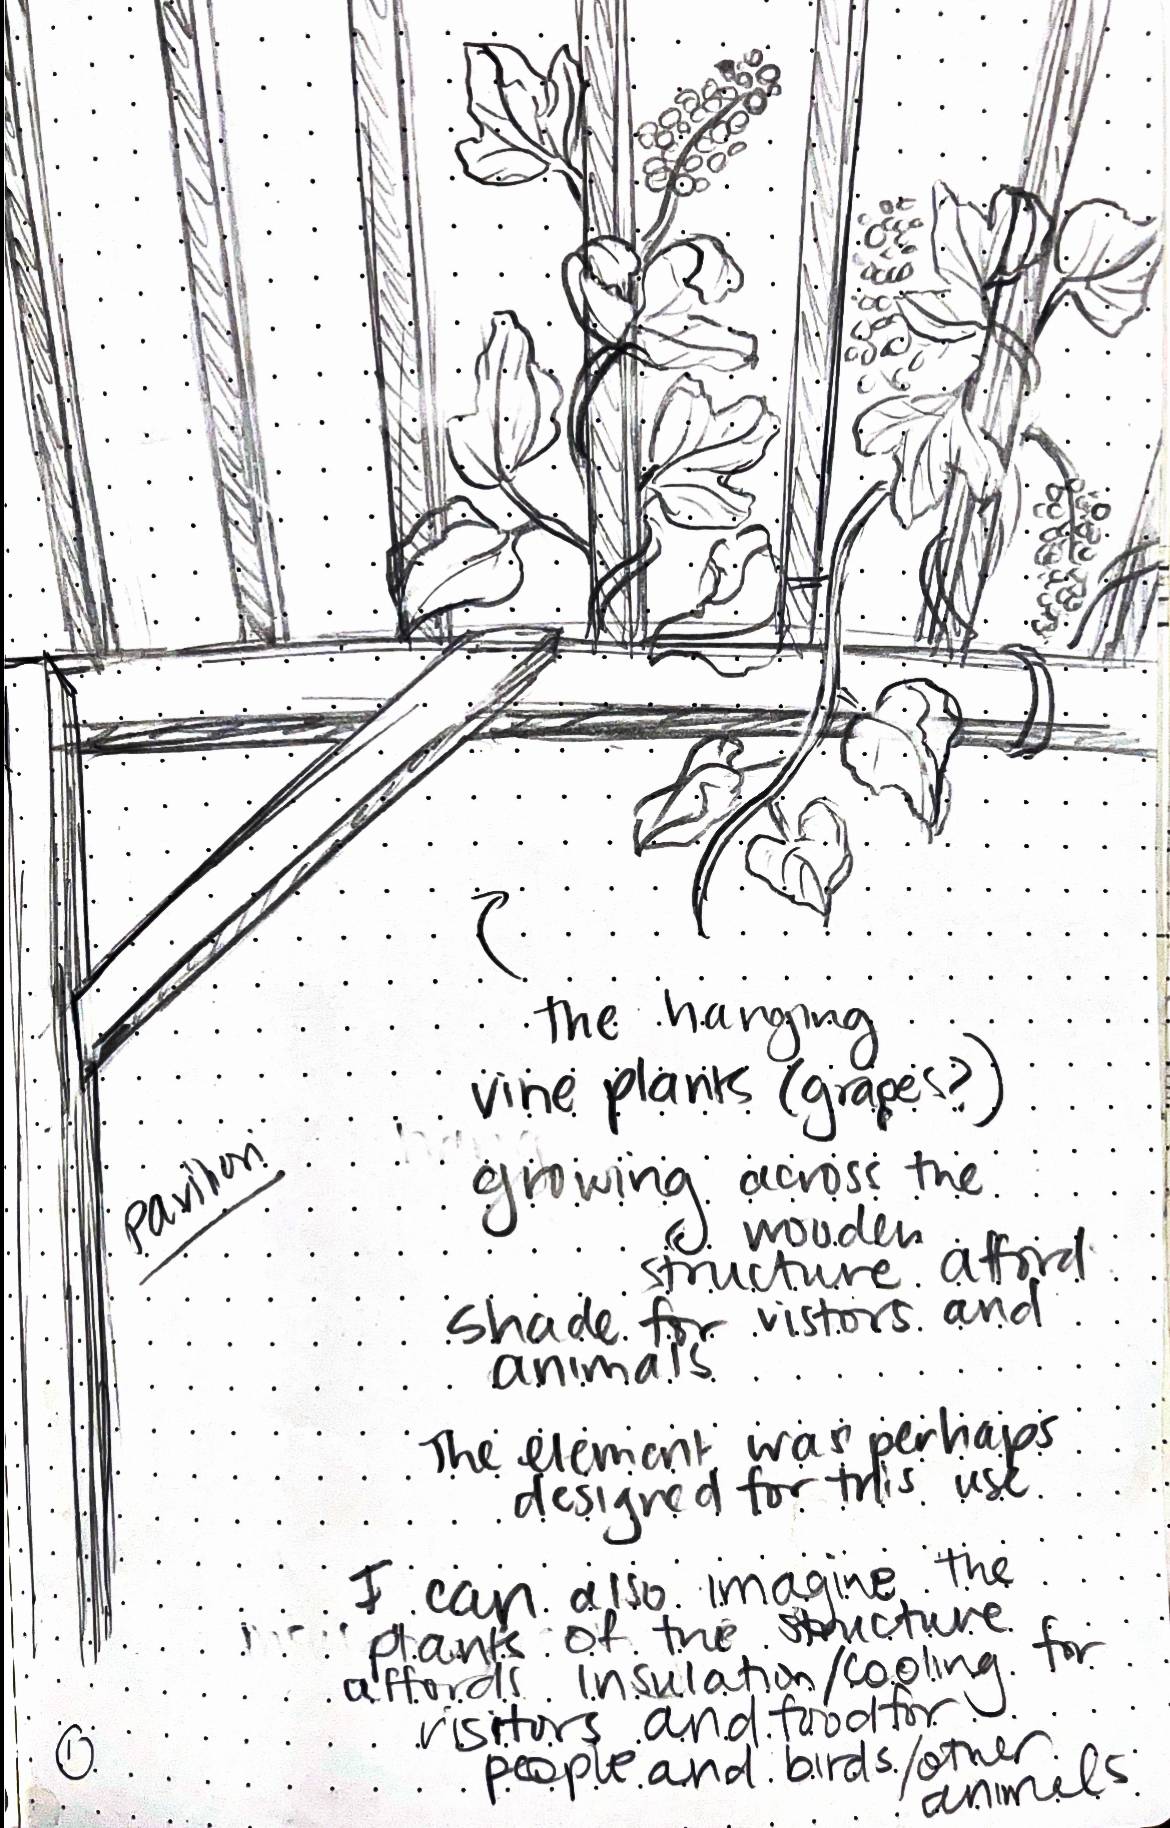 the hanging
vine plants (grapes?)
growing across the
wooden
structure afford
shade for vistors and
animals
pavilion
The element was perhaps
designed for this use
I can also imagine the
plants of the structure
affords insulation/cooling for
visitors and food for
people and birds/other
animals
1